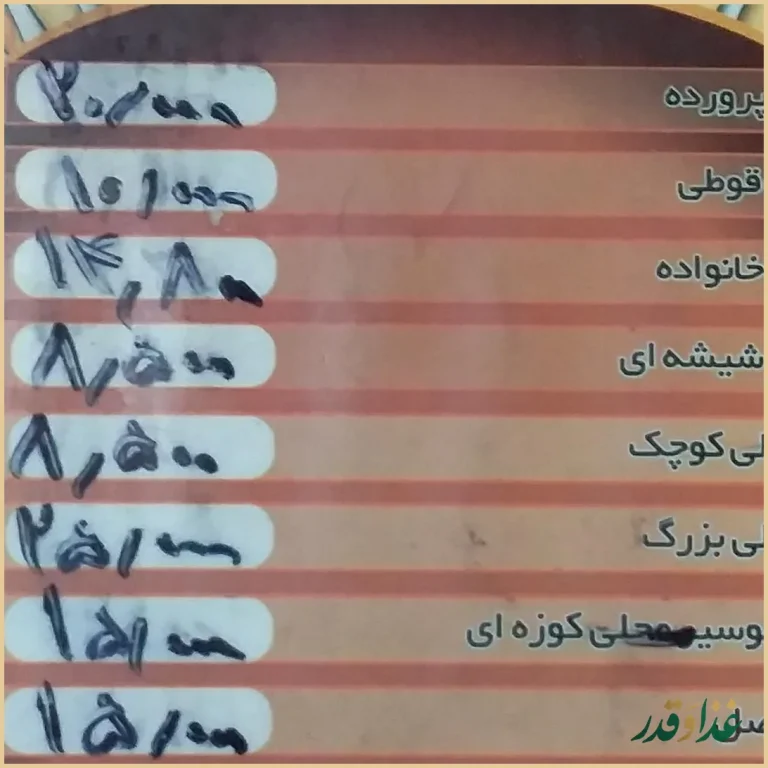 پرورده ۲۰/۰۰۰
قوطی ۱۰/۰۰۰
خانواده ۱۴,۸۰۰
شیشه ای ۸,۵۰۰
لی کوچک ۸,۵۰۰
لی بزرگ ۲۵/۰۰۰
محلی کوزه ای ۱۵/۰۰۰
۱۵/۰۰۰
غذا و قدر